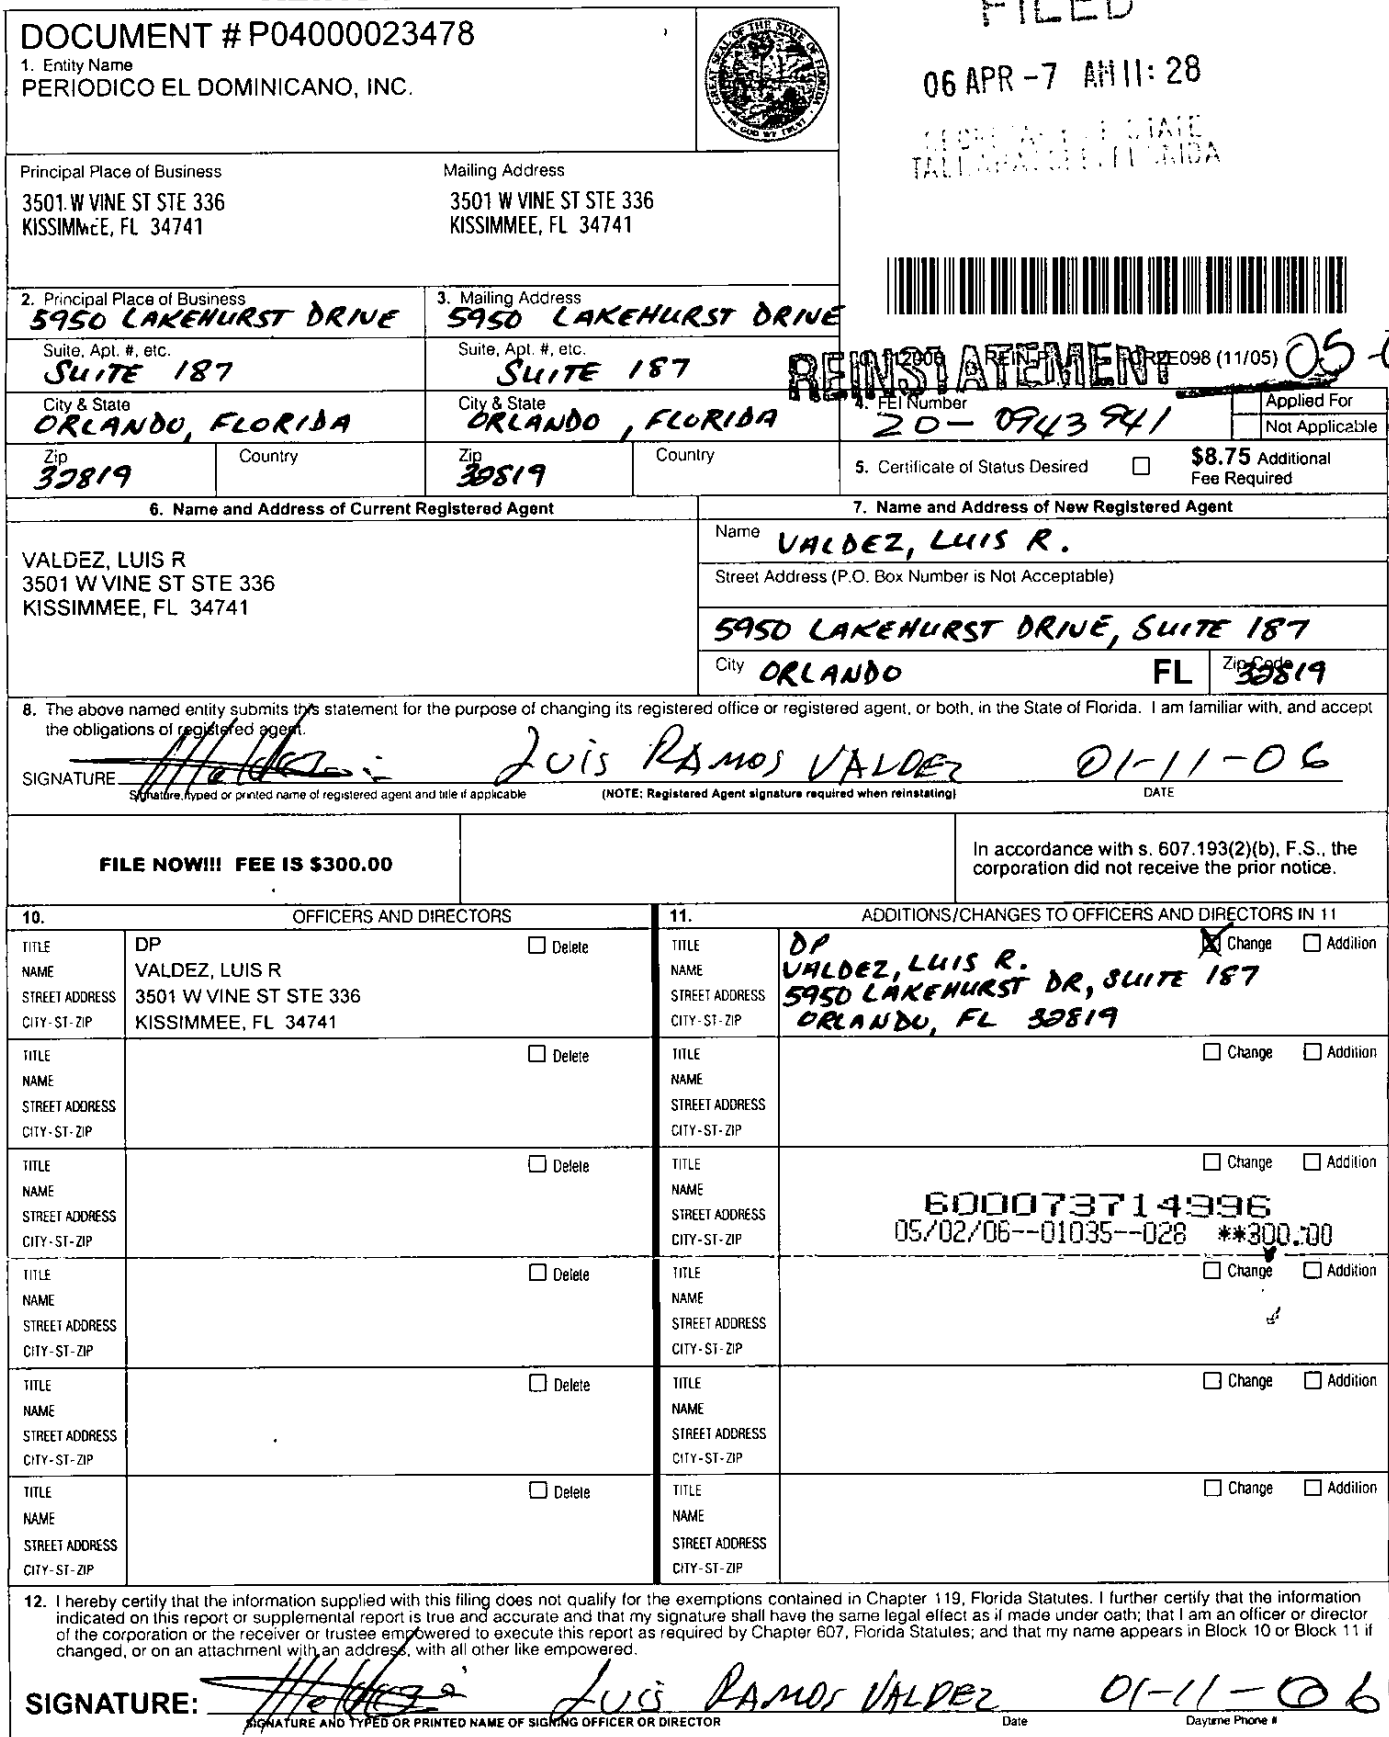 FILED
DOCUMENT # P04000023478
1. Entity Name
PERIODICO EL DOMINICANO, INC.
06 APR -7 AM 11: 28
TALLAHASSEE, FLORIDA
Principal Place of Business
3501 W VINE ST STE 336
KISSIMMEE, FL 34741
Mailing Address
3501 W VINE ST STE 336
KISSIMMEE, FL 34741
2. Principal Place of Business
5950 LAKEHURST DRIVE
3. Mailing Address
5950 LAKEHURST DRIVE
Suite, Apt. #, etc.
SUITE 187
Suite, Apt. #, etc.
SUITE 187
REINSTATEMENT
098 (11/05)
05
City & State
ORLANDO, FLORIDA
City & State
ORLANDO, FLORIDA
4. FEI Number
20-0943941
Applied For
Not Applicable
Zip
32819
Country
Zip
32819
Country
5. Certificate of Status Desired
$8.75 Additional
Fee Required
6. Name and Address of Current Registered Agent
VALDEZ, LUIS R
3501 W VINE ST STE 336
KISSIMMEE, FL 34741
7. Name and Address of New Registered Agent
Name VALDEZ, LUIS R.
Street Address (P.O. Box Number is Not Acceptable)
5950 LAKEHURST DRIVE, SUITE 187
City ORLANDO FL Zip Code 32819
8. The above named entity submits this statement for the purpose of changing its registered office or registered agent, or both, in the State of Florida. I am familiar with, and accept
the obligations of registered agent.
SIGNATURE Luis RAMOS VALDEZ 01-11-06
Signature, typed or printed name of registered agent and title if applicable (NOTE: Registered Agent signature required when reinstating) DATE
FILE NOW!!! FEE IS $300.00
In accordance with s. 607.193(2)(b), F.S., the
corporation did not receive the prior notice.
10. OFFICERS AND DIRECTORS
11. ADDITIONS/CHANGES TO OFFICERS AND DIRECTORS IN 11
TITLE DP Delete
NAME VALDEZ, LUIS R
STREET ADDRESS 3501 W VINE ST STE 336
CITY-ST-ZIP KISSIMMEE, FL 34741
TITLE DP Change Addition
NAME VALDEZ, LUIS R.
STREET ADDRESS 5950 LAKEHURST DR, SUITE 187
CITY-ST-ZIP ORLANDO, FL 32819
TITLE Delete
NAME
STREET ADDRESS
CITY-ST-ZIP
TITLE Change Addition
NAME
STREET ADDRESS
CITY-ST-ZIP
TITLE Delete
NAME
STREET ADDRESS
CITY-ST-ZIP
TITLE Change Addition
NAME
600073714996
STREET ADDRESS
05/02/06--01035--028 **300.00
CITY-ST-ZIP
TITLE Delete
NAME
STREET ADDRESS
CITY-ST-ZIP
TITLE Change Addition
NAME
STREET ADDRESS
CITY-ST-ZIP
TITLE Delete
NAME
STREET ADDRESS
CITY-ST-ZIP
TITLE Change Addition
NAME
STREET ADDRESS
CITY-ST-ZIP
TITLE Delete
NAME
STREET ADDRESS
CITY-ST-ZIP
TITLE Change Addition
NAME
STREET ADDRESS
CITY-ST-ZIP
12. I hereby certify that the information supplied with this filing does not qualify for the exemptions contained in Chapter 119, Florida Statutes. I further certify that the information
indicated on this report or supplemental report is true and accurate and that my signature shall have the same legal effect as if made under oath; that I am an officer or director
of the corporation or the receiver or trustee empowered to execute this report as required by Chapter 607, Florida Statutes; and that my name appears in Block 10 or Block 11 if
changed, or on an attachment with an address, with all other like empowered.
SIGNATURE: Luis RAMOS VALDEZ 01-11-06
SIGNATURE AND TYPED OR PRINTED NAME OF SIGNING OFFICER OR DIRECTOR Date Daytime Phone #